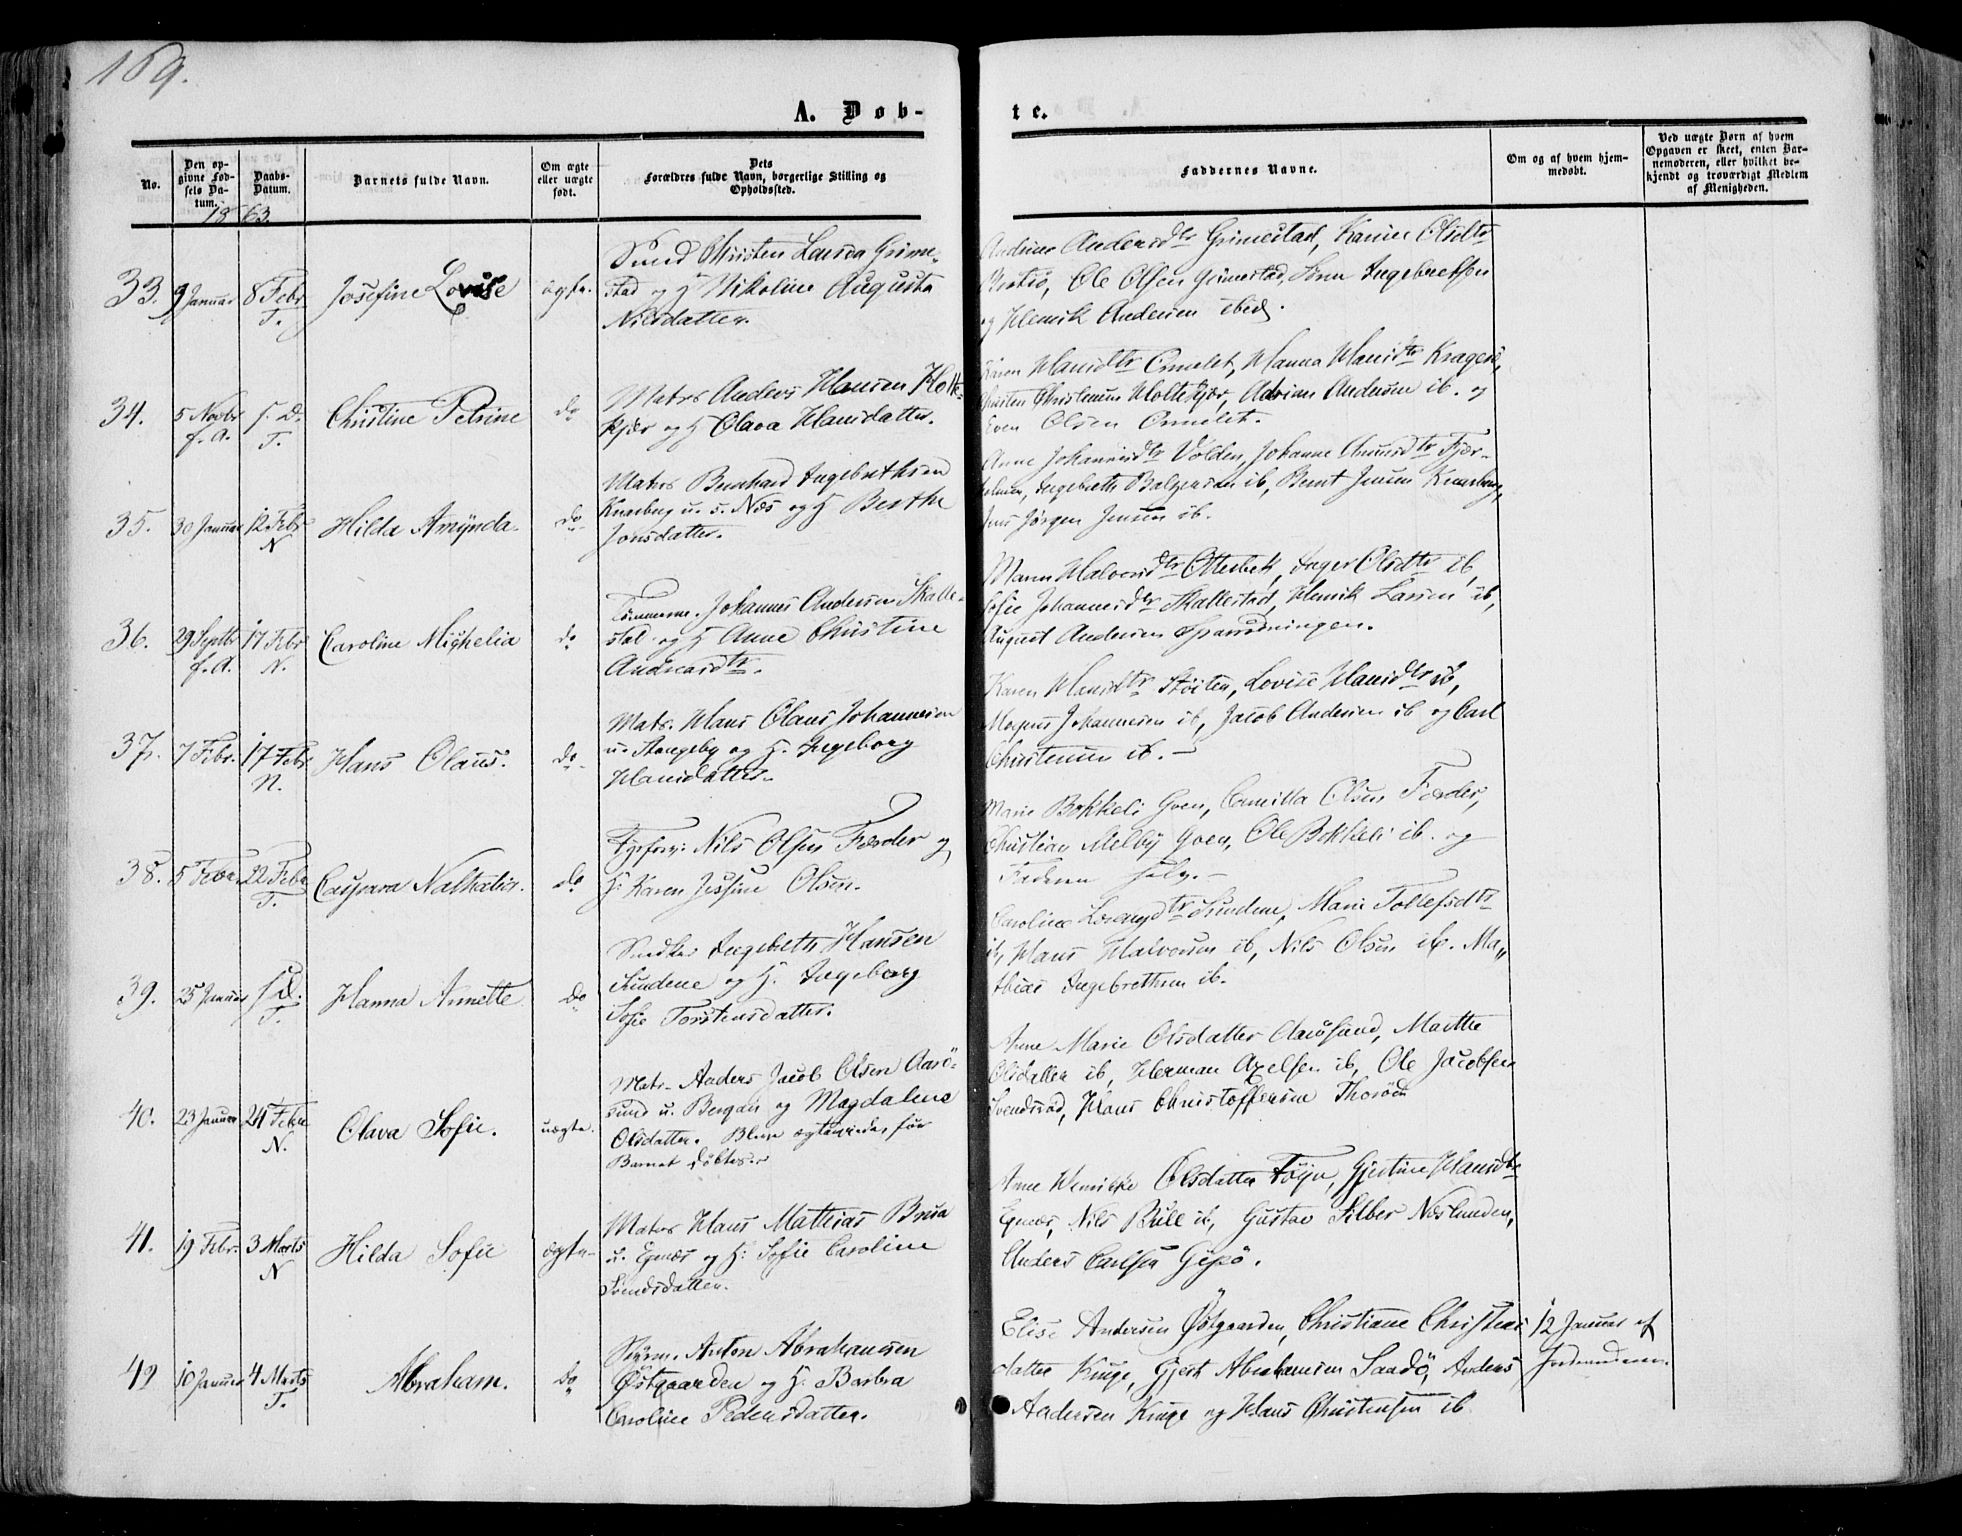 169.
A. Døb-
te.
No.
Den op-
givne Fød-
sels Da-
tum.
Daabs-
Datum.
Barnets fulde Navn.
Om ægte
eller uægte
født.
Dets
Forældres fulde Navn, borgerlige Stilling og
Opholdssted.
Faddernes Navne.
Om og af hvem hjem-
medøbt.
Ved uægte Børn af hvem
Opgaven er skeet, enten Bar-
nemoderen, eller hvilket be-
kjendt og troværdigt Medlem
af Menigheden.
1863.
33. 9 Januar 8 Febr T. Josefine Lovise ægte.
Christen Grime-
stad og H Nikoline Augusta
Nilsdatter.
Andrine Andersdtr Grimestad, Karine Olsdtr
Ole Olsen Grimestad, Ingebretsen
og Henrik Andersen ibid.
34. 5 Novbr f. A. s. D. T. Christine Petrine do
Matros Anders Hansen Holte-
kjær og H Olava Hansdatter.
Karen Hansdtr Ormelet, Hanna Hansdtr Kragerø,
Christen Christensen Holtekjær, Adrian Andersen ib. og
Even Olsen Ormelet.
35. 30 Januar 12 Febr N Hilda Amynda do
Matros Bernhard Ingebrethsen
Knarberg u. s. Næs og H Berthe
Jonsdatter.
Anne Johannesdtr Volden, Johanne Fjær-
holmen, Ingebreth Baltzersen ib, Bernt Jensen Knarberg,
Jens Jørgen Jensen ib.
36. 29 Septbr f. A. 17 Febr N. Caroline Mighelia do
Tømmerm. Johannes Andersen Skalle-
stad og H Anne Christine
Andreasdtr.
Maren Halvorsdtr Otterbek, Inger Olsdtr ib,
Sofie Johannesdtr Skallestad, Henrik Larsen ib,
August Andersen
37. 7 Febr. 17 Febr N. Hans Olaus. do
Matr. Hans Olaus Johannesen
u. Stangeby og H. Ingeborg
Hansdatter.
Karen Hansdtr Støiten, Lovise Hansdtr ib,
Magnus Johannesen ib, Jacob Andersen ib og Carl
Christensen ib. —
38. 5 Febr. 22 Febr T. Caspara Nathalia. do
Fyrforv: Nils Olsen Færder og
H: Karen Jossine Olsen.
Marie Bokkeli Goen, Camilla Olsen Færder,
Christian Melby Goen, Ole Bokkeli ib. og
Faderen selv. —
39. 25 Januar s. D. T. Hanna Annette do
Snedker Ingebreth Hansen
Sundene og H. Ingeborg
Sofie Torstensdatter.
Caroline Lorenzdtr Sundene, Marie Tollefsdtr
ib, Hans Halvorsen ib, Nils Olsen ib. Ma„
thias Ingebrethsen ib.
40. 23 Januar 24 Febr N. Olava Sofie. uægte.
Matr. Anders Jacob Olsen Aarø-
sund u. Bergan og Magdalene
Olsdatter. Bleve ægteviede før
Barnet døbtes.
Anne Marie Olsdatter Aarøsund, Marthe
Olsdatter ib, Herman Axelsen ib, Ole Jacobsen
Svendsrød, Hans Christoffersen Thorød
41. 19 Febr. 3 Marts N Hilda Sofie ægte
Matros Hans Mathias
u. Egenæs og H: Sofie Caroline
Svendsdatter.
Anne Henrikke Olsdatter Føyn, Gjertine Hansdtr
Egenæs, Nils Bull ib, Gustav Silber Næslunden,
Anders Carlsen Gipø.
42 10 Januar 4 Marts T. Abraham. do
Styrm. Anton Abrahamsen
Østgaarden og H: Barbra
Caroline Pedersdatter.
Elise Andersen Østgaarden, Christiane Christians
datter Kruge, Gjert Abrahamsen Sandø, Anders
Andersen Kruge og Hans Christensen ib
12 Januar af
Jordmoderen.